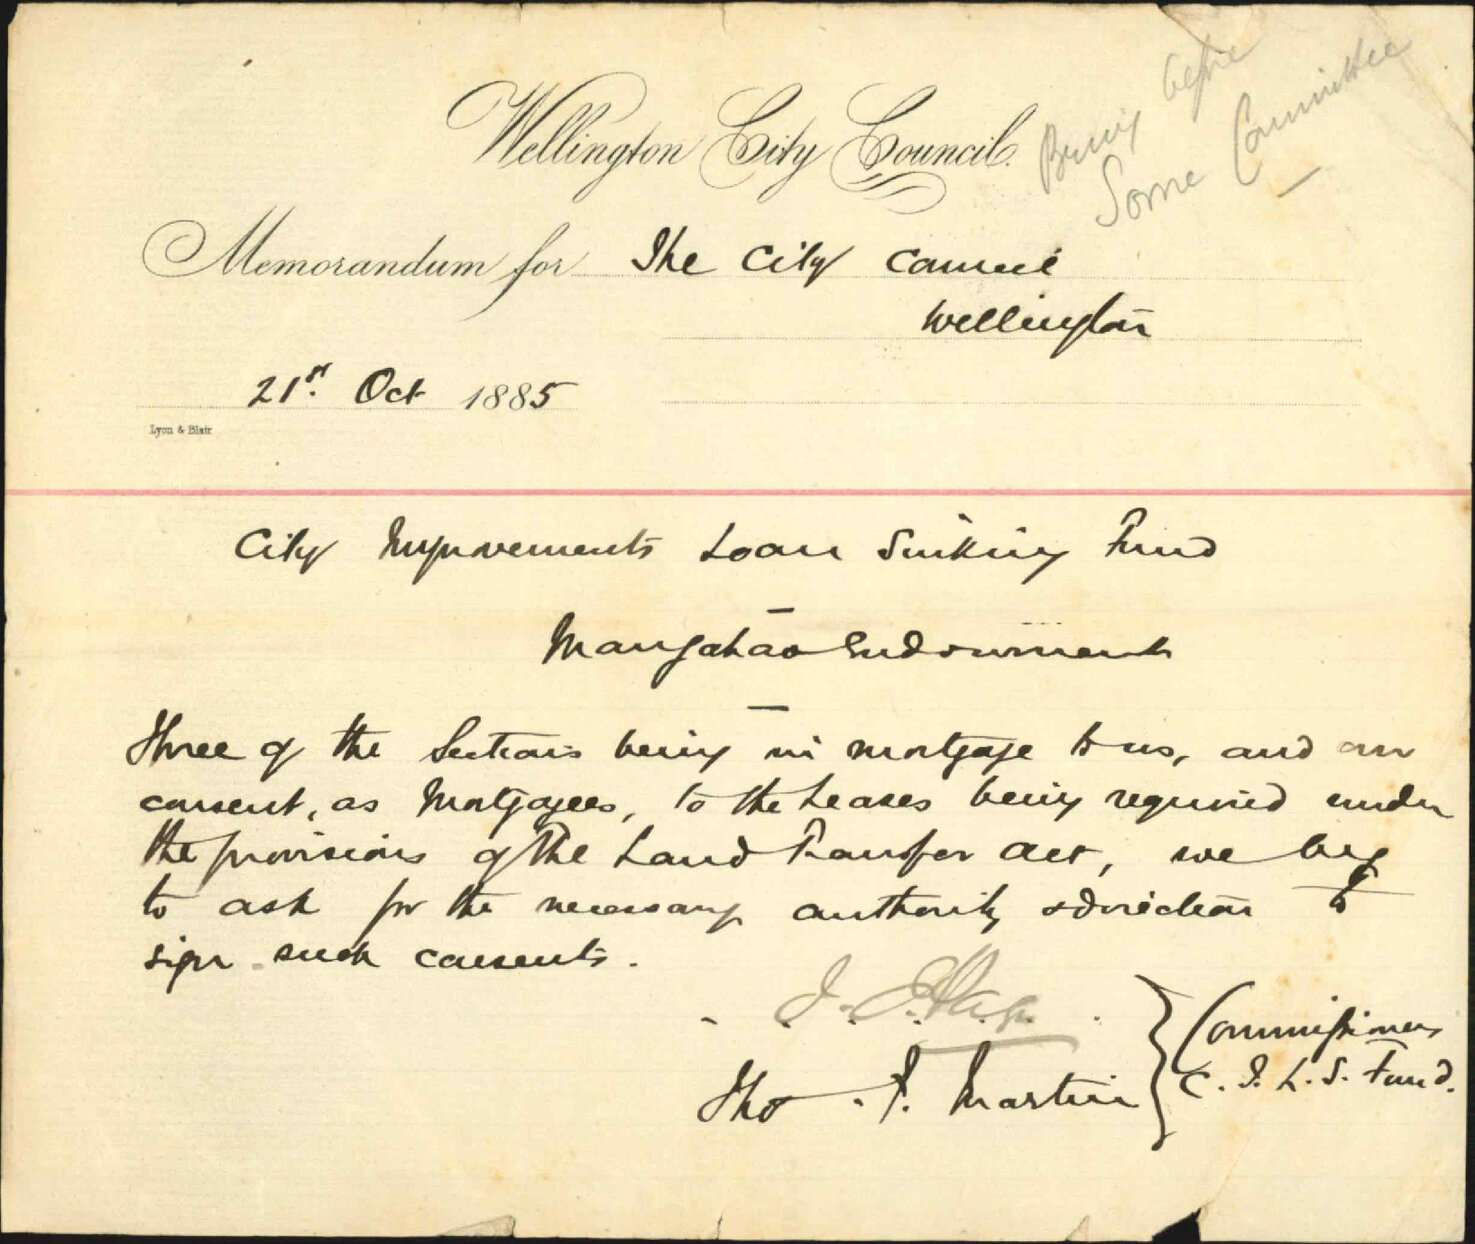 Bring before
Some Committee
Wellington City Council.
Memorandum for The City Council
Wellington
21st. Oct 1885
Lyon & Blair
City Improvements Loan Sinking Fund
Mangahao Endowment
Three of the Sections being in mortgage to us, and our
consent, as Mortgagees, to the Leases being required under
the provisions of the Land Transfer Act, we beg
to ask for the necessary authority & direction to
sign such consents.
Tho F. Martin
Commissioners
C. I. L. S. Fund.